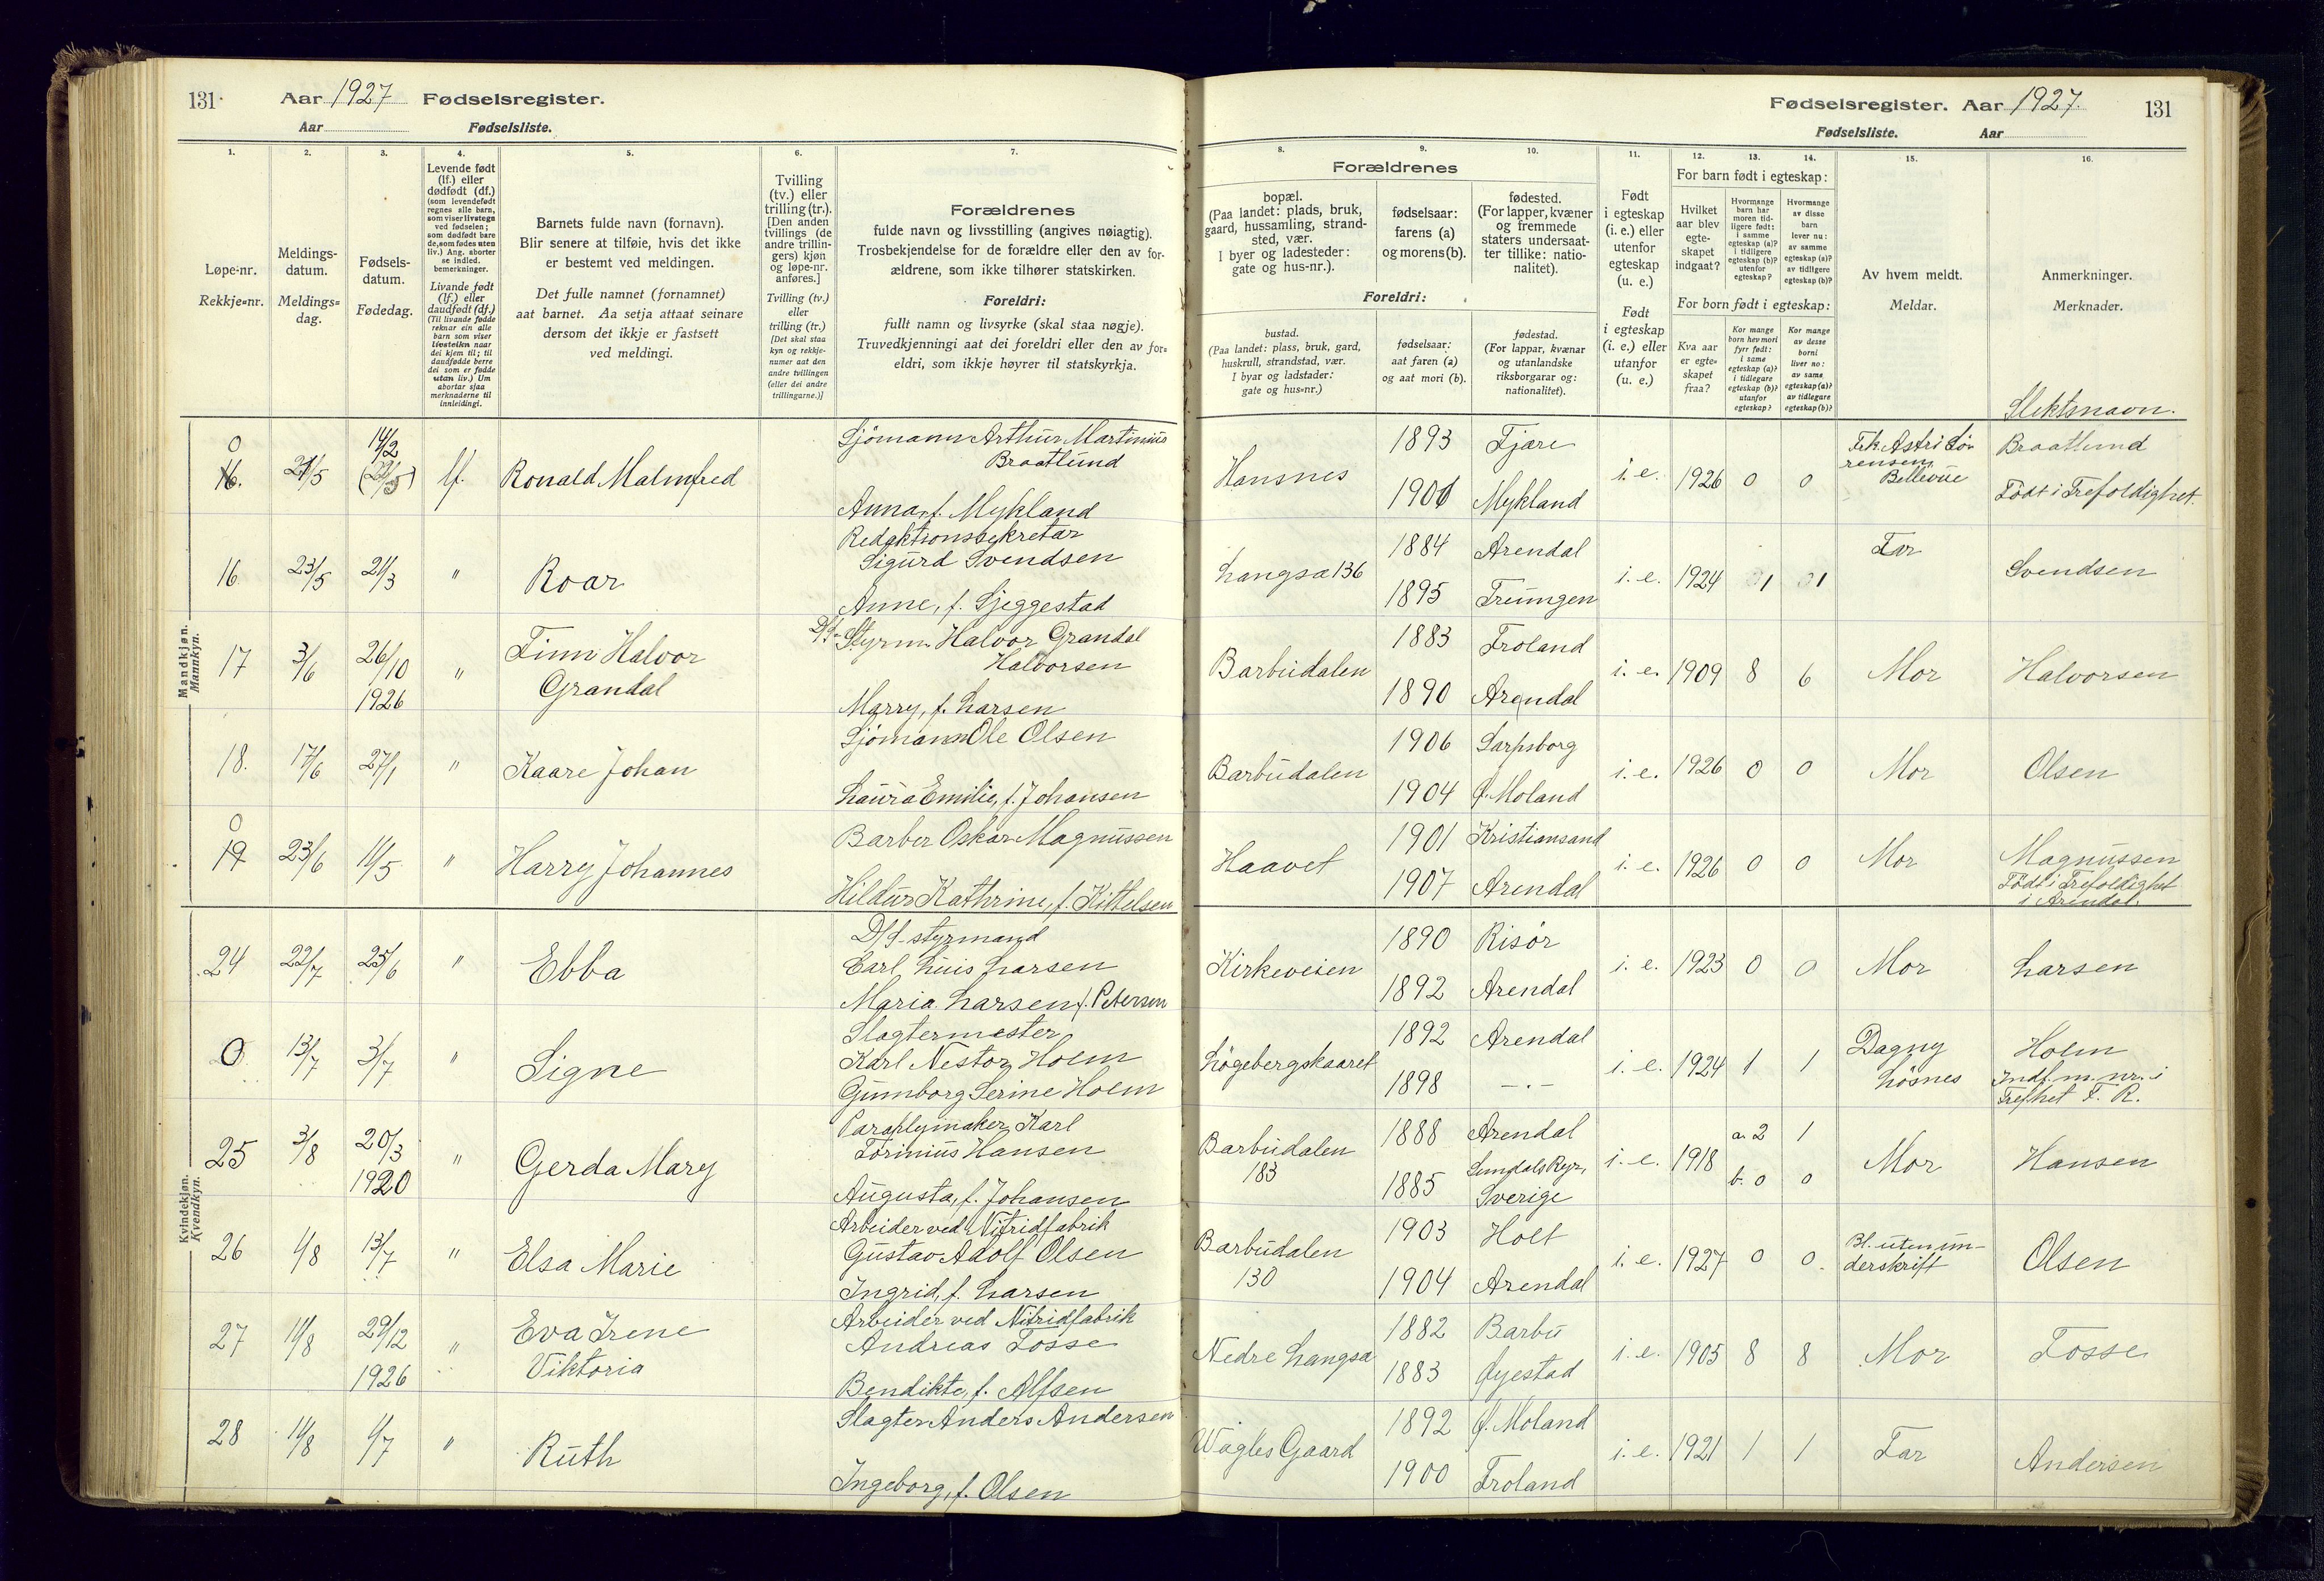 131. Aar 1927 Fødselsregister.
Aar Fødselsliste.
1. 2. 3. 4. 5. 6. 7.
Løpe-nr.
Rekkje-nr.
Meldings-
datum.
Meldings-
dag.
Fødsels-
datum.
Fødedag.
Levende født
(lf.) eller
dødfødt (df.)
(som levendefødt
regnes alle barn,
som viser livstegn
ved fødselen;
som dødfødt bare
de, som fødes uten
liv.) Ang. aborter
se indled.
bemerkninger.
Livande født
(lf.) eller
daudfødt (df.)
(Til livande fødde
reknar ein alle
barn som viser
livsteikn naar
dei kjem til; til
daudfødde berre
dei som er fødde
utan liv.) Um
abortar sjaa
merknaderne til
innleidingi.
Barnets fulde navn (fornavn).
Blir senere at tilføie, hvis det ikke
er bestemt ved meldingen.
Det fulle namnet (fornamnet)
aat barnet. Aa setja attaat seinare
dersom det ikkje er fastsett
ved meldingi.
Tvilling
(tv.) eller
trilling (tr.).
[Den anden
tvillings (de
andre trillin-
gers) kjøn
og løpe-nr.
anføres.]
Tvilling (tv.)
eller
trilling (tr.)
[Det skal staa
kyn og rekkje-
numer aat den
andre tvillingen
(eller dei andre
trillingarne.)]
Forældrenes
fulde navn og livsstilling (angives nøiagtig).
Trosbekjendelse for de forældre eller den av for-
ældrene, som ikke tilhører statskirken.
Foreldri:
fullt namn og livsyrke (skal staa nøgje).
Truvedkjenningi aat dei foreldri eller den av for-
eldri, som ikkje høyrer til statskyrkja.
Fødselsregister. Aar 1927. 131
Fødselsliste. Aar
8. 9. 10. 11. 12. 13. 14. 15. 16.
Forældrenes
bopæl.
(Paa landet: plads, bruk,
gaard, hussamling, strand-
sted, vær.
I byer og ladesteder:
gate og hus-nr.).
fødselsaar:
farens (a)
og morens (b).
fødested.
(For lapper, kvæner
og fremmede
staters undersaat-
ter tillike: natio-
nalitet).
Foreldri:
bustad.
(Paa landet: plass, bruk, gard,
huskrull, strandstad, vær.
I byar og ladstader:
gate og hus-nr.)
fødselsaar:
aat faren (a)
og aat mori (b).
fødestad.
(For lappar, kvænar
og utanlandske
riksborgarar og:
nationalitet).
Født
i egteskap
(i. e.) eller
utenfor
egteskap
(u. e.)
Født
i egteskap
(i. e.) eller
utanfor
egteskap
(u. e.)
For barn født i egteskap:
Hvilket
aar blev
egte-
skapet
indgaat?
Hvormange
barn har
moren tid-
ligere født:
i samme
egteskap (a)?
i tidligere
egteskap (b)?
utenfor
egteskap?
Hvormange
av disse
barn
lever nu:
av samme
egteskap (a)?
av tidligere
egteskap (b)?
For born født i egteskap:
Kva aar
er egte-
skapet
fraa?
Kor mange
born hev mori
fyrr født:
i same
egteskap (a)?
i tidlegare
egteskap (b)?
utanfor
egteskap?
Kor mange
av desse
borni
liver no:
av same
egteskap (a)?
av tidlegare
egteskap (b)?
Av hvem meldt.
Meldar.
Anmerkninger.
Merknader.
Slektsnavn.
Mandkjøn.
Mannkyn.
0
16. 21/5 14/2 (22/5) lf. Ronald Malmfred
Sjömann Arthur Martinius
Braatlund
Anna, f. Mykland
Hansnes 1893 Fjære i. e. 1926 0 0 Frk. Astri Sö-
rensen,
Bellevue
1901 Mykland
Braatlund
Födt i Trefoldighet.
16. 23/5 21/3 " Roar
Redaktionssekretær
Sigurd Svendsen
Anne, f. Sjeggestad
Langsæ 136 1884 Arendal i. e. 1924 1 1 Far Svendsen
1895 Treungen
17 3/6 26/10 1926 " Finn Halvor
Grandal
D/S-Styrm. Halvor Grandal
Halvorsen
Marry, f. Larsen
Barbudalen 1883 Froland i. e. 1909 8 6 Mor Halvorsen
1890 Arendal
18. 17/6 27/1 " Kaare Johan
Sjömann Ole Olsen
Laura Emilie, f. Johansen
Barbudalen 1906 Sarpsborg i. e. 1926 0 0 Mor Olsen
1904 Ø. Moland
0
19 23/6 11/5 " Harry Johannes
Barber Oskar Magnussen
Hildur Kathrine, f. Kittelsen
Haavet 1901 Kristiansand i. e. 1926 0 0 Mor Magnussen
1907 Arendal
Födt i Trefoldighet
i Arendal.
Kvindekjøn.
Kvendkyn.
24 22/7 25/6 " Ebba
D/S-styrmand
Carl Luis Larsen
Maria Larsen f. Petersen
Kirkeveien 1890 Risör i. e. 1923 0 0 Mor Larsen
1892 Arendal
0 13/7 3/7 " Signe
Slagtermester
Karl Nestor Holm
Gunborg Serine Holm
Lögebergskaaret 1892 Arendal i. e. 1924 1 1 Dagny
Lösnes
1898 -.-
Holm
Indf. m. nr. i
Trefhet F. R.
25 3/8 20/3 1920 " Gerda Mary
Paraplymaker Karl
Torinius Hansen
Augusta, f. Johansen
Barbudalen
183
1888 Arendal i. e. 1918 a. 2 1 b. 0 0 Mor Hansen
1885 Sverige
26 4/8 13/7 " Elsa Marie
Arbeider ved Nitridfabrik
Gustav Adolf Olsen
Ingrid, f. Larsen
Barbudalen
130
1903 Holt i. e. 1927 0 0. Bl. uten un-
derskrift
1904 Arendal
Olsen
27 11/8 29/12 1926 " Eva Irene
Viktoria
Arbeider ved Nitridfabrik
Andreas Fosse
Bendikte, f. Alfsen
Nedre Langsæ 1882 Barbu i. e. 1905 8 8 Mor Fosse
1883 Øyestad
28 11/8 1/7 " Ruth
Slagter Anders Andersen
Ingeborg, f. Olsen
Wagles Gaard 1892 Ø. Moland i. e. 1921 1 1 Far Andersen
1900 Froland